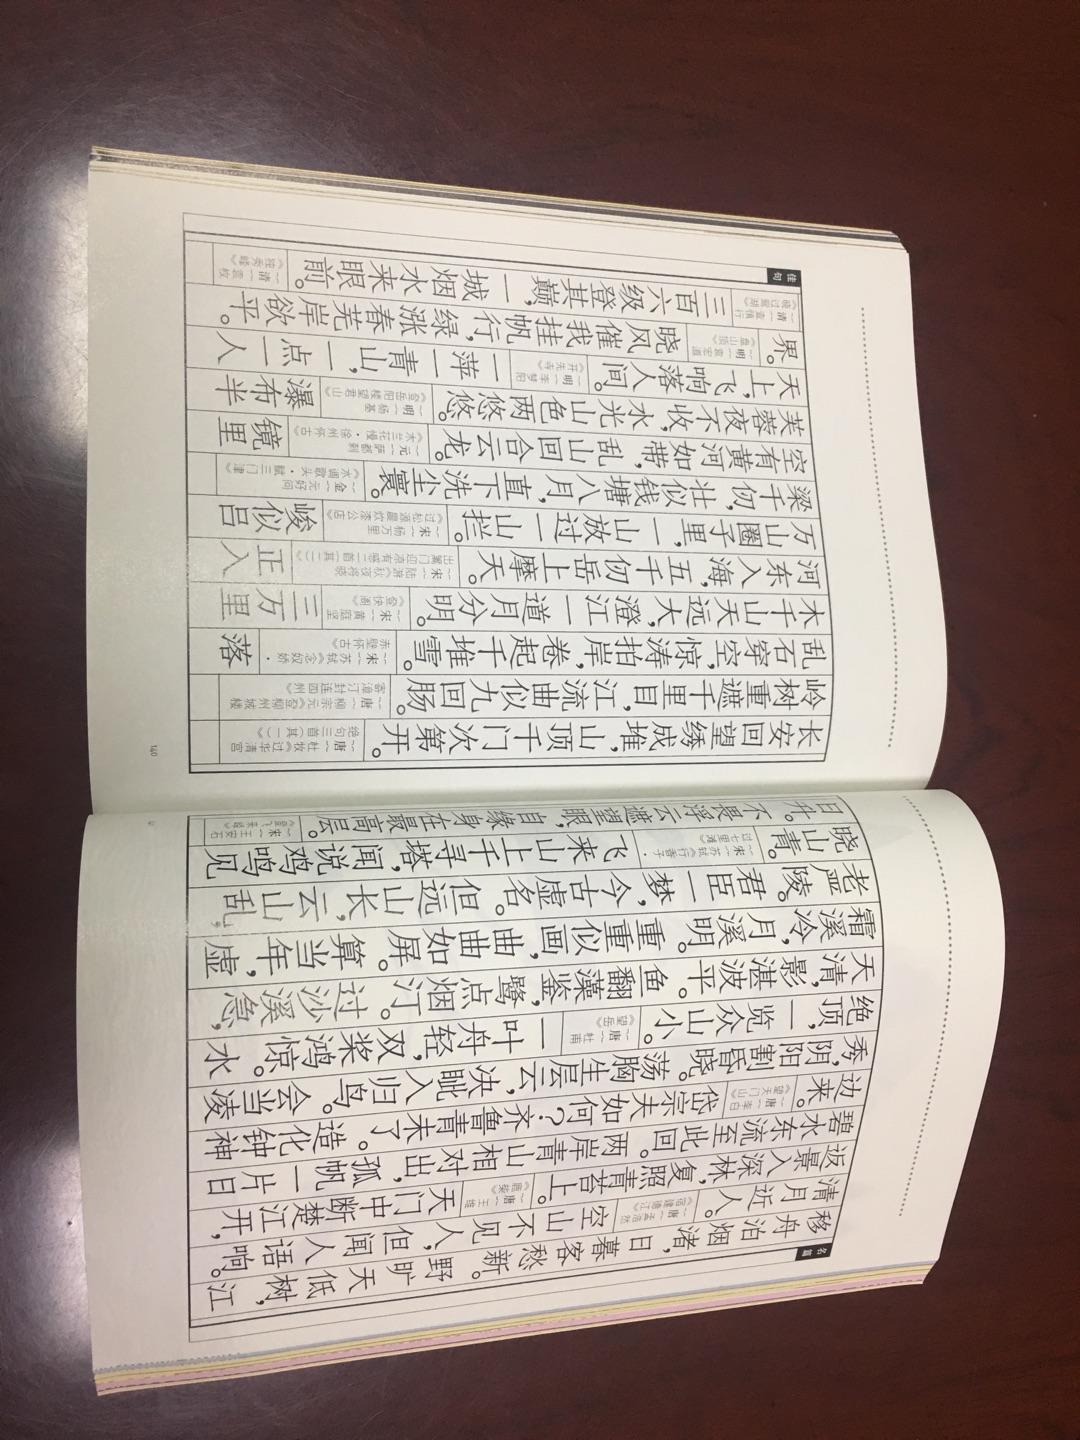 名篇
移舟泊烟渚,日暮客愁新。野旷天低树,江
清月近人。〔唐〕孟浩然《宿建德江》空山不见人,但闻人语响。
返景入深林,复照青苔上。〔唐〕王维《鹿柴》天门中断楚江开,
碧水东流至此回。两岸青山相对出,孤帆一片日
边来。〔唐〕李白《望天门山》岱宗夫如何?齐鲁青未了。造化钟神
秀,阴阳割昏晓。荡胸生层云,决眦入归鸟。会当凌
绝顶,一览众山小。〔唐〕杜甫《望岳》一叶舟轻,双桨鸿惊。水
天清,影湛波平。鱼翻藻鉴,鹭点烟汀。过沙溪急,
霜溪冷,月溪明。重重似画,曲曲如屏。算当年,虚
老严陵。君臣一梦,今古虚名。但远山长,云山乱,
晓山青。〔宋〕苏轼《行香子·过七里濑》飞来山上千寻塔,闻说鸡鸣见
日升。不畏浮云遮望眼,自缘身在最高层。〔宋〕王安石《登飞来峰》
长安回望绣成堆,山顶千门次第开。〔唐〕杜牧《过华清宫绝句三首(其一)》
岭树重遮千里目,江流曲似九回肠。〔唐〕柳宗元《登柳州城楼寄漳汀封连四州》
乱石穿空,惊涛拍岸,卷起千堆雪。〔宋〕苏轼《念奴娇·赤壁怀古》落
木千山天远大,澄江一道月分明。〔宋〕黄庭坚《登快阁》三万里
河东入海,五千仞岳上摩天。〔宋〕陆游《秋夜将晓出篱门迎凉有感二首(其二)》正入
万山圈子里,一山放过一山拦。〔宋〕杨万里《过松源晨炊漆公店》峻似吕
梁千仞,壮似钱塘八月,直下洗尘寰。〔金〕元好问《水调歌头·赋三门津》
空有黄河如带,乱山回合云龙。〔元〕萨都剌《木兰花慢·徐州怀古》镜里
芙蓉夜不收,水光山色两悠悠。〔明〕杨基《登岳阳楼望君山》瀑布半
天上,飞响落人间。〔明〕李梦阳《开先寺》一萍一青山,一点一人
界。〔明〕袁宏道 晓风催我挂帆行,绿涨春芜岸欲平。
〔清〕查慎行《晓过鸳湖》三百六级登其巅,一城烟水来眼前。〔清〕袁枚《独秀峰》
佳句
140